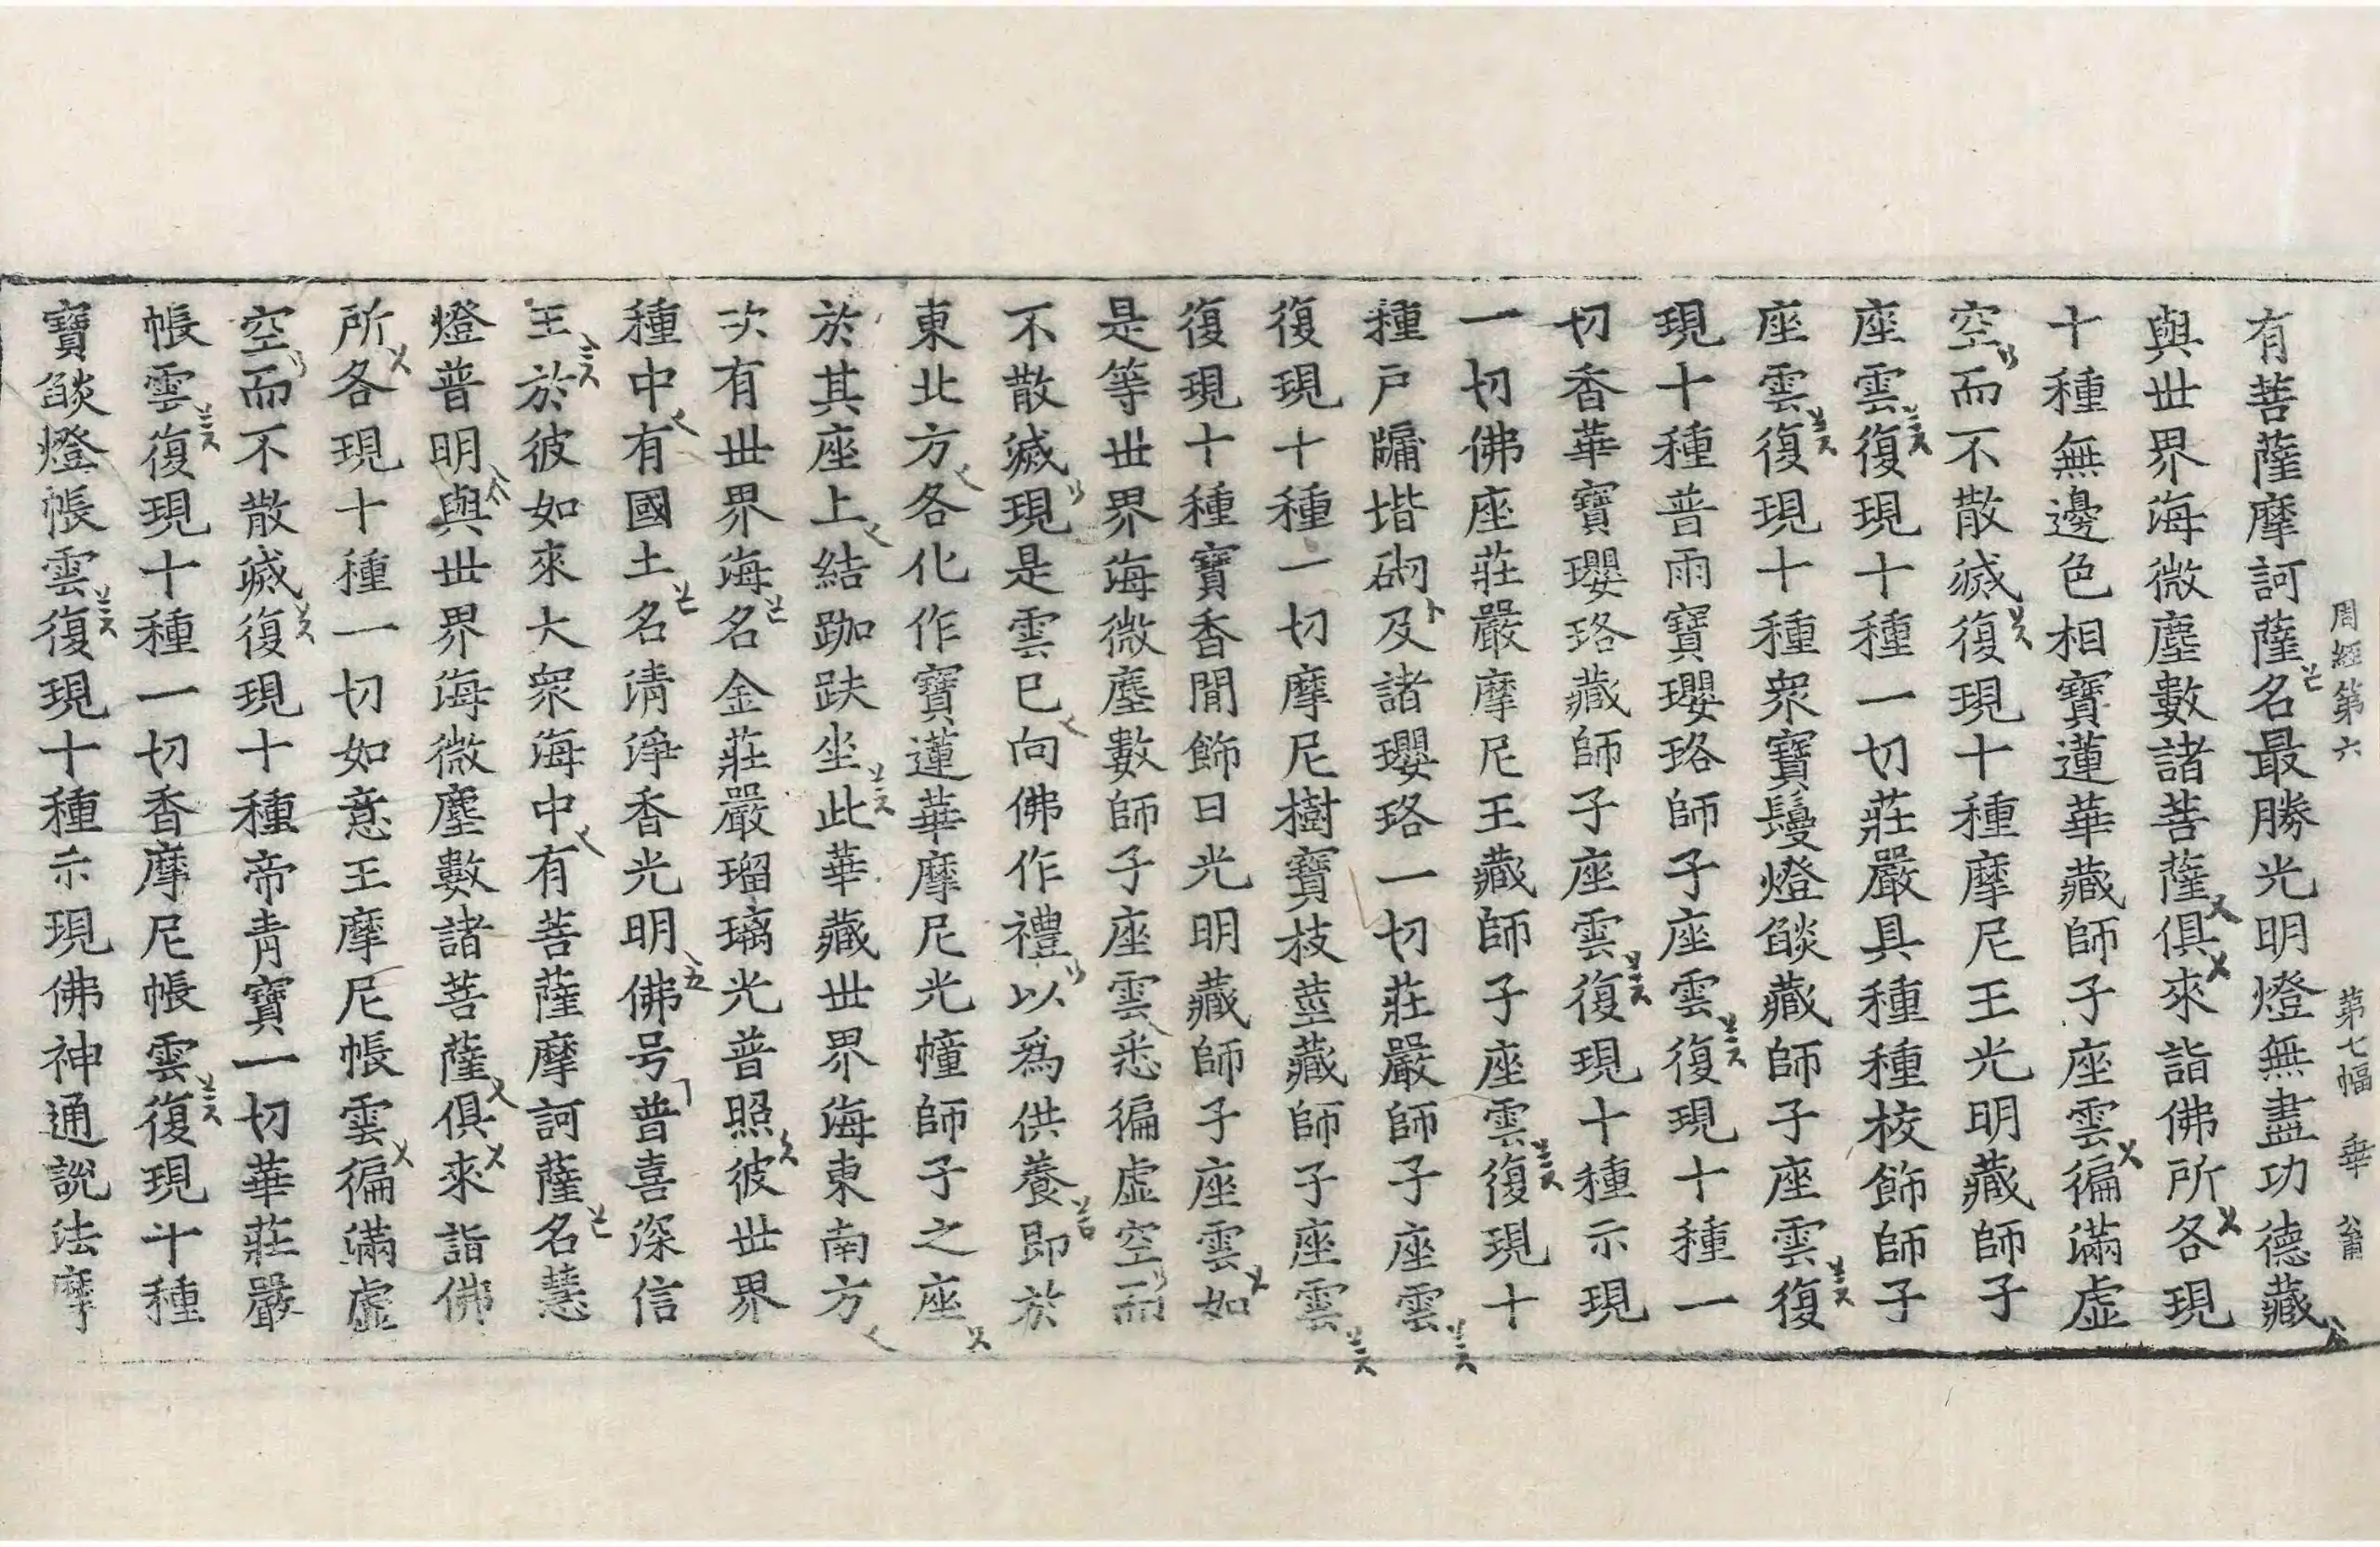 周經第六 第七幅 華
有菩薩摩訶薩名最勝光明燈無盡功德藏
與世界海微塵數諸菩薩俱來詣佛所各現
十種無邊色相寶蓮華藏師子座雲徧滿虛
空而不散滅復現十種摩尼王光明藏師子
座雲復現十種一切莊嚴具種種校飾師子
座雲復現十種衆寶鬘燈燄藏師子座雲復
現十種普雨寶瓔珞師子座雲復現十種一
切香華寶瓔珞藏師子座雲復現十種示現
一切佛座莊嚴摩尼王藏師子座雲復現十
種戶牖堦砌及諸瓔珞一切莊嚴師子座雲
復現十種一切摩尼樹寶枝莖藏師子座雲
復現十種寶香閒飾日光明藏師子座雲如
是等世界海微塵數師子座雲悉徧虛空而
不散滅現是雲已向佛作禮以爲供養即於
東北方各化作寶蓮華摩尼光幢師子之座
於其座上結跏趺坐此華藏世界海東南方
次有世界海名金莊嚴瑠璃光普照彼世界
種中有國土名清淨香光明佛号普喜深信
王於彼如來大衆海中有菩薩摩訶薩名慧
燈普明與世界海微塵數諸菩薩俱來詣佛
所各現十種一切如意王摩尼帳雲徧滿虛
空而不散滅復現十種帝青寶一切華莊嚴
帳雲復現十種一切香摩尼帳雲復現十種
寶燄燈帳雲復現十種示現佛神通說法摩